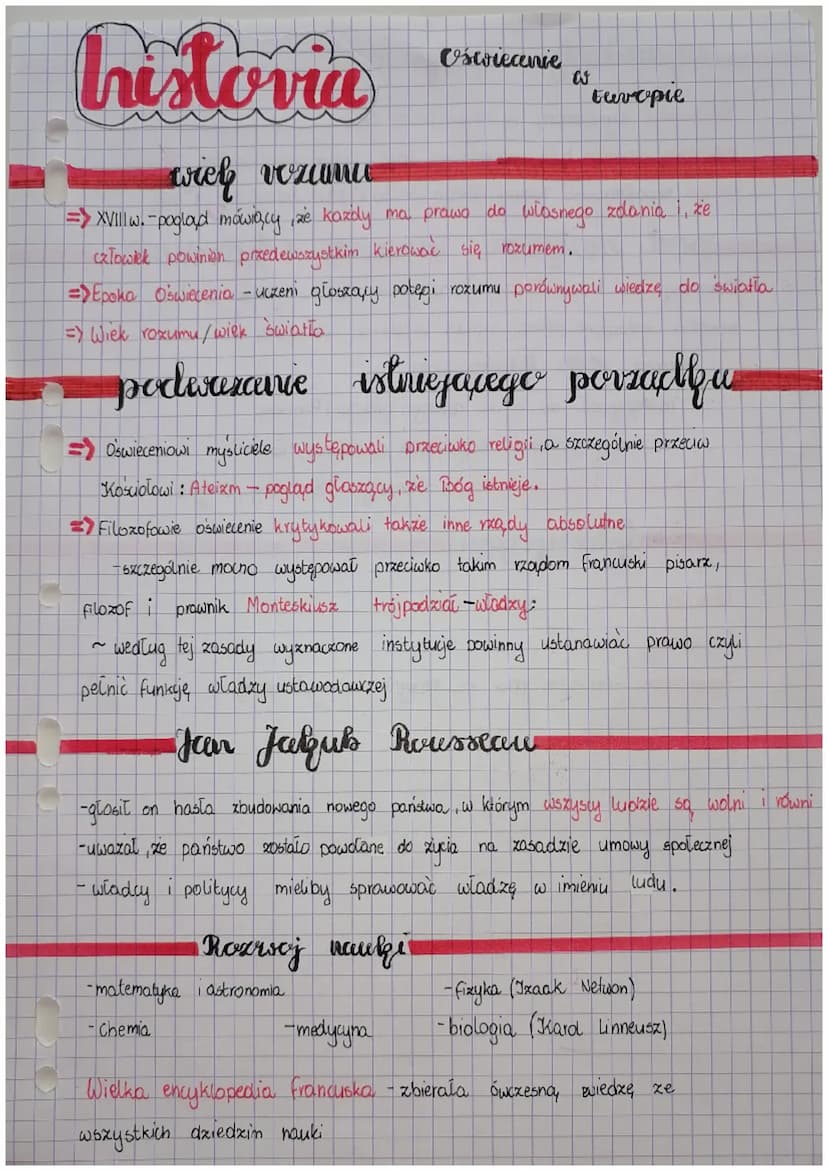 historia
Oświecenie
w
Europie
wiek rozumu
=> XVIII w. - pogląd mówiący, że każdy ma prawo do własnego zdania i, że
człowiek powinien przedewszystkim kierować się rozumem.
=> Epoka Oświecenia - uczeni głoszący potęgi rozumu porównywali wiedzę do światła
=> Wiek rozumu/wiek światła
podważanie istniejącego porządku
=> Oświeceniowi myśliciele występowali przeciwko religii, a szczególnie przeciw
Kościołowi: Ateizm - pogląd głaszący, że Bóg istnieje.
=> Filozofowie oświecenie krytykowali także inne rządy absolutne
-szczególnie mocno występował przeciwko takim rządom francuski pisarz,
filozof i prawnik Monteskiusz trójpodział-władzy:
~ według tej zasady wyznaczone instytucje powinny ustanawiać prawo czyli
pełnić funkję władzy ustawodawczej
Jan Jakub Rousseau
-głosił on hasła zbudowania nowego państwa, w którym wszyscy ludzie są wolni i równi
-uważał, że państwo zostało powołane do życia na zasadzie umowy społecznej
- władcy i politycy mieliby sprawować władzę w imieniu ludu.
Rozwój nauki
-matematyka i astronomia -fizyka (Izaak Netwon)
-Chemia -medycyna -biologia (Karol Linneusz)
Wielka encyklopedia francuska - zbierała ówczesną wiedzę ze
wszystkich dziedzin nauki